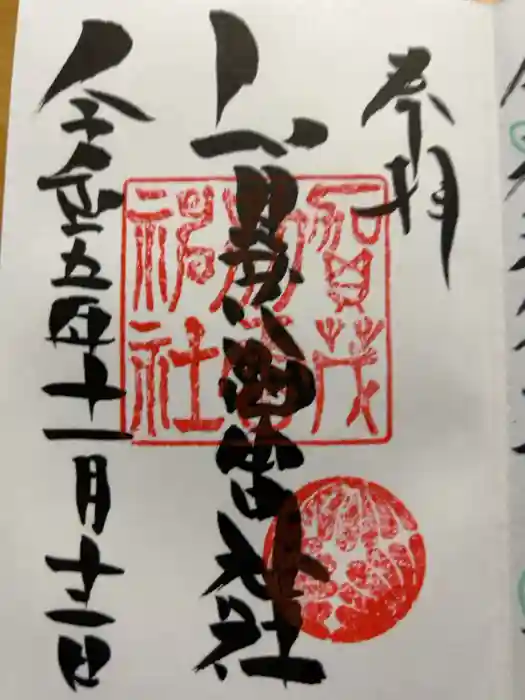 奉拝
賀茂別雷神社
令和五年十一月十二日
賀茂
別雷
神社